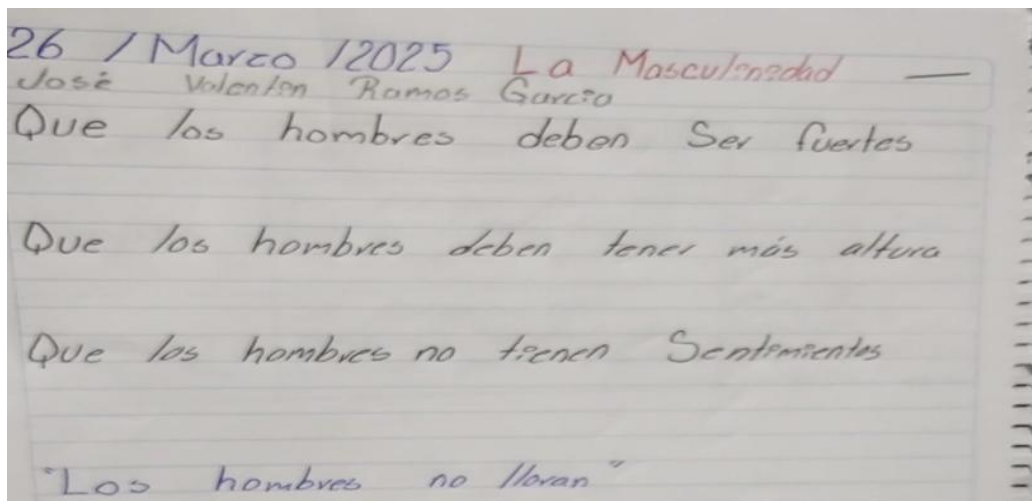 26 / Marzo / 2025 La Masculinidad —
José Valentin Ramos Garcia
Que los hombres deben Ser fuertes
Que los hombres deben tener más altura
Que los hombres no tienen Sentimientos
"Los hombres no lloran"